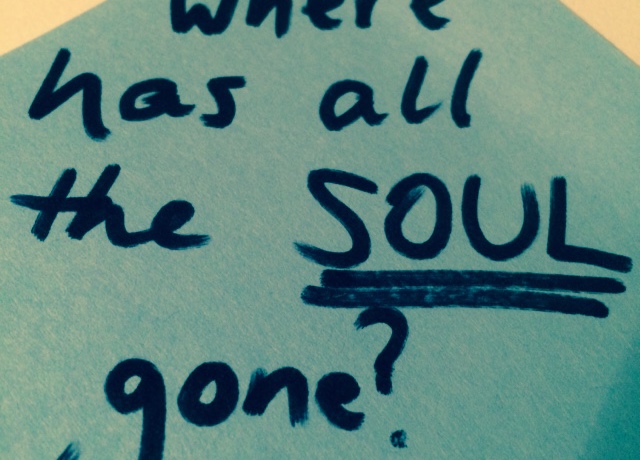 where
has all
the SOUL
gone?